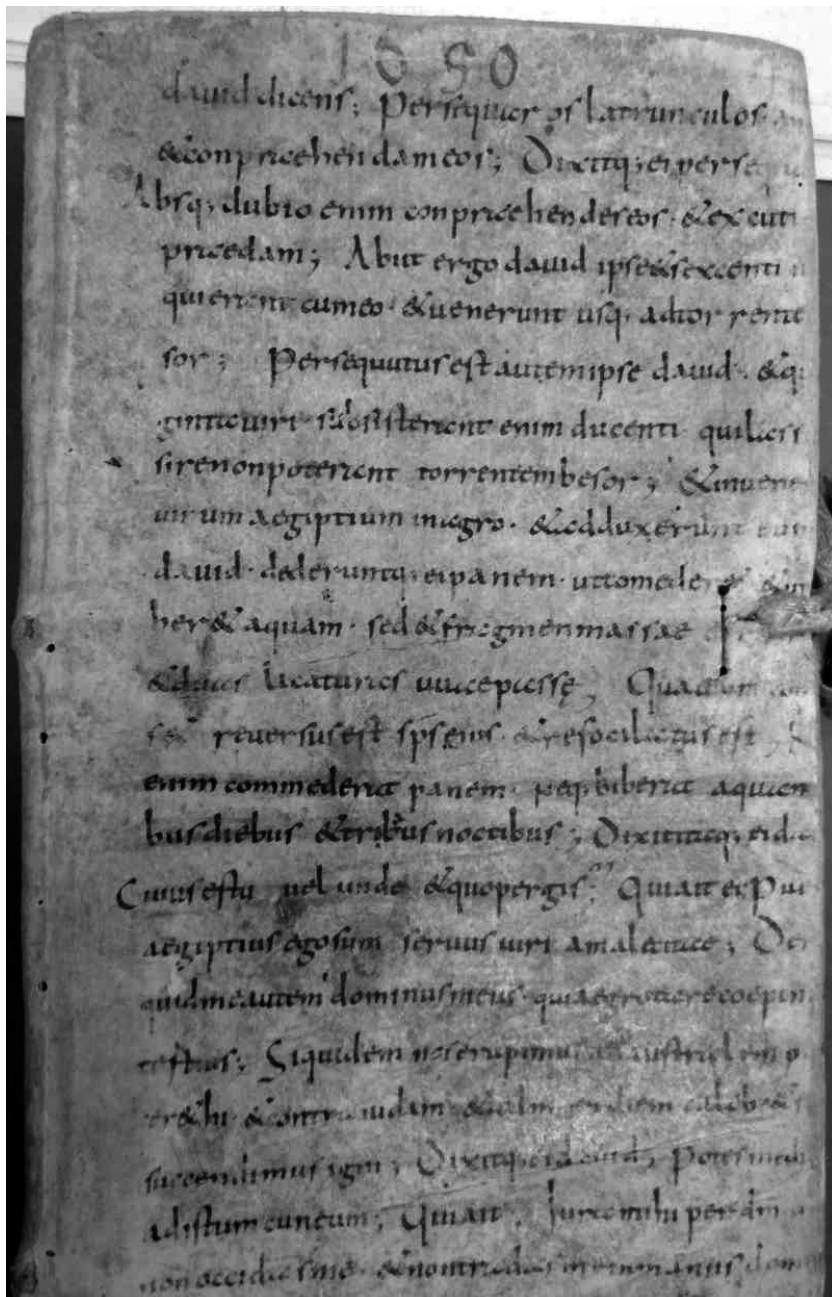 1650
david dicens; Persequar os latrunculos
& conpraehendam eos; Dixitq; ei perseq
Absq; dubio enim conpraehenderes eos · & excuti
praedam; Abiit ergo david ipse & sexcenti
qui erant cum eo · & venerunt usq; ad torrente
sor; Persequutus est autem ipse david · & q
ginta viri · substiterant enim ducenti · qui lass
sire non poterant torrentem besor; & invene
virum aegiptium in agro · & adduxerunt eum
david · dederuntq; ei panem · ut comederet &
ber& aquam · sed & fragmen massae
& duas uvae passę; Quae cum
set reversus est sps eius · & resocilatus est;
enim commederat panem · neq; biberat aquam
bus diebus & tribus noctibus; Dixit itaq; ei da
Cuius es tu vel unde & quo pergis; Qui ait ei Pu
aegiptius ego sum servus viri amalecitae; De
quid me autem dominus meus · quia egrotare coepi n
tertius; Siquidem nos erupimus australem p
& contra iudam & diem caleb &
succendimus igni; Dixitq; ei david; Potes me
ad istum cuneum; Qui ait; Iura mihi per dm
non occidas me · & non tradas me in manus dom